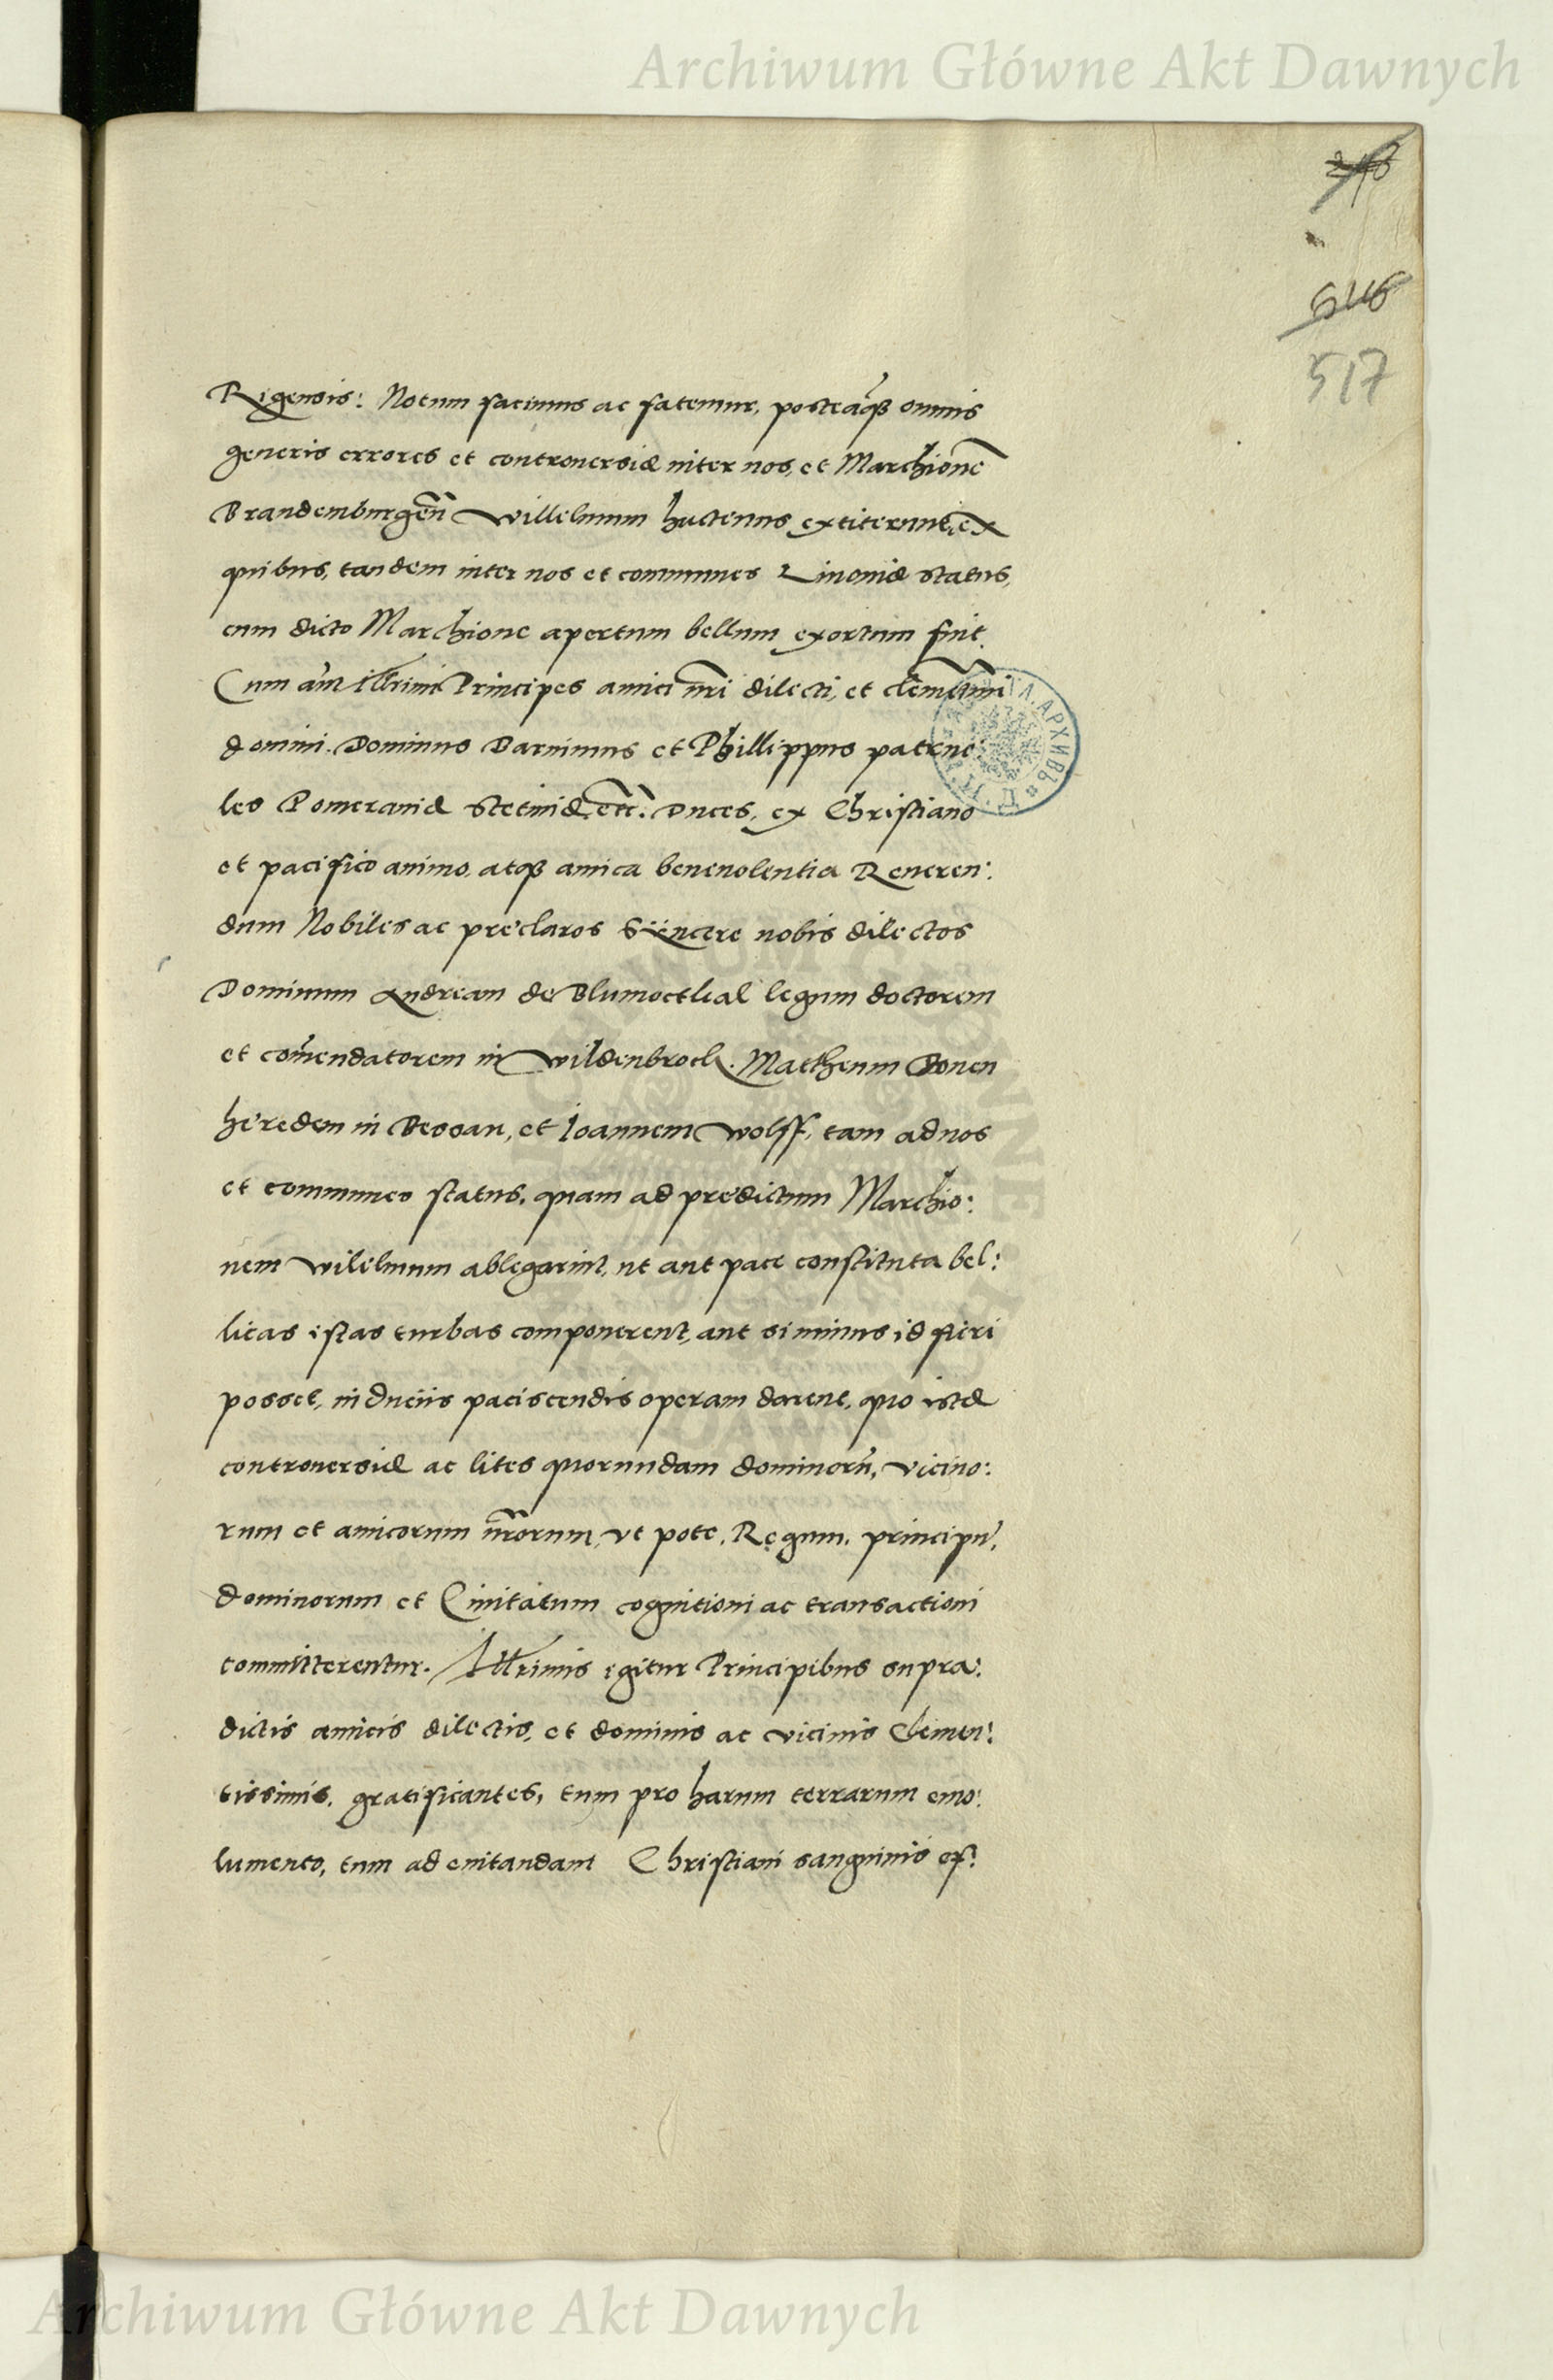 Archiwum Główne Akt Dawnych
517
Rigensis: Notum facimus ac fatemur, posteaq̃ȝ omnis
generis errores et controuersiæ inter nos, et Marchionē
Brandemburgeñ Willelmum hactenus extiterunt, ex
quibus, tandem inter nos et communes Liuoniæ status,
cum dicto Marchione apertum bellum exortum fuit.
Cum aũt Illr̃imi Principes amici nr̃i dilecti, et clemẽtmi
domini. Dominus Barnimus et Phillippus patrue:
les Pomeraniæ Stetiniæ, etc̃: Duces, ex Christiano
et pacifico animo, atqȝ amica beneuolentia Reueren:
dum Nobiles ac preclaros Sÿncere nobis dilectos
Dominum Andream de Blumoethal legum doctorem
et com̃endatorem in Wildenbroch. Mattheum Bonen
heredem in Bessan, et Ioannem Wolff, tam ad nos
et communes status, quam ad predictum Marchio:
nem Wilelmum ablegarint, ut aut pace constituta bel:
licas istas turbas componerent, aut si minus id fieri
posset, induciis paciscendis operam darent, quo istæ
controuersiæ ac lites quorundam dominorũ, vicino:
rum et amicorum nr̃orum, vt pote, Regum, principũ,
dominorum et Ciuitatum cognitioni ac transactioni
committerentur. Illr̃imis igitur Principibus supra:
dictis amicis dilectis, et dominis ac vicinis Clemen:
tissimis, gratificantes, tum pro harum terrarum emo:
lumento, tum ad euitandam Christiani sanguinis ef:
Archiwum Główne Akt Dawnych